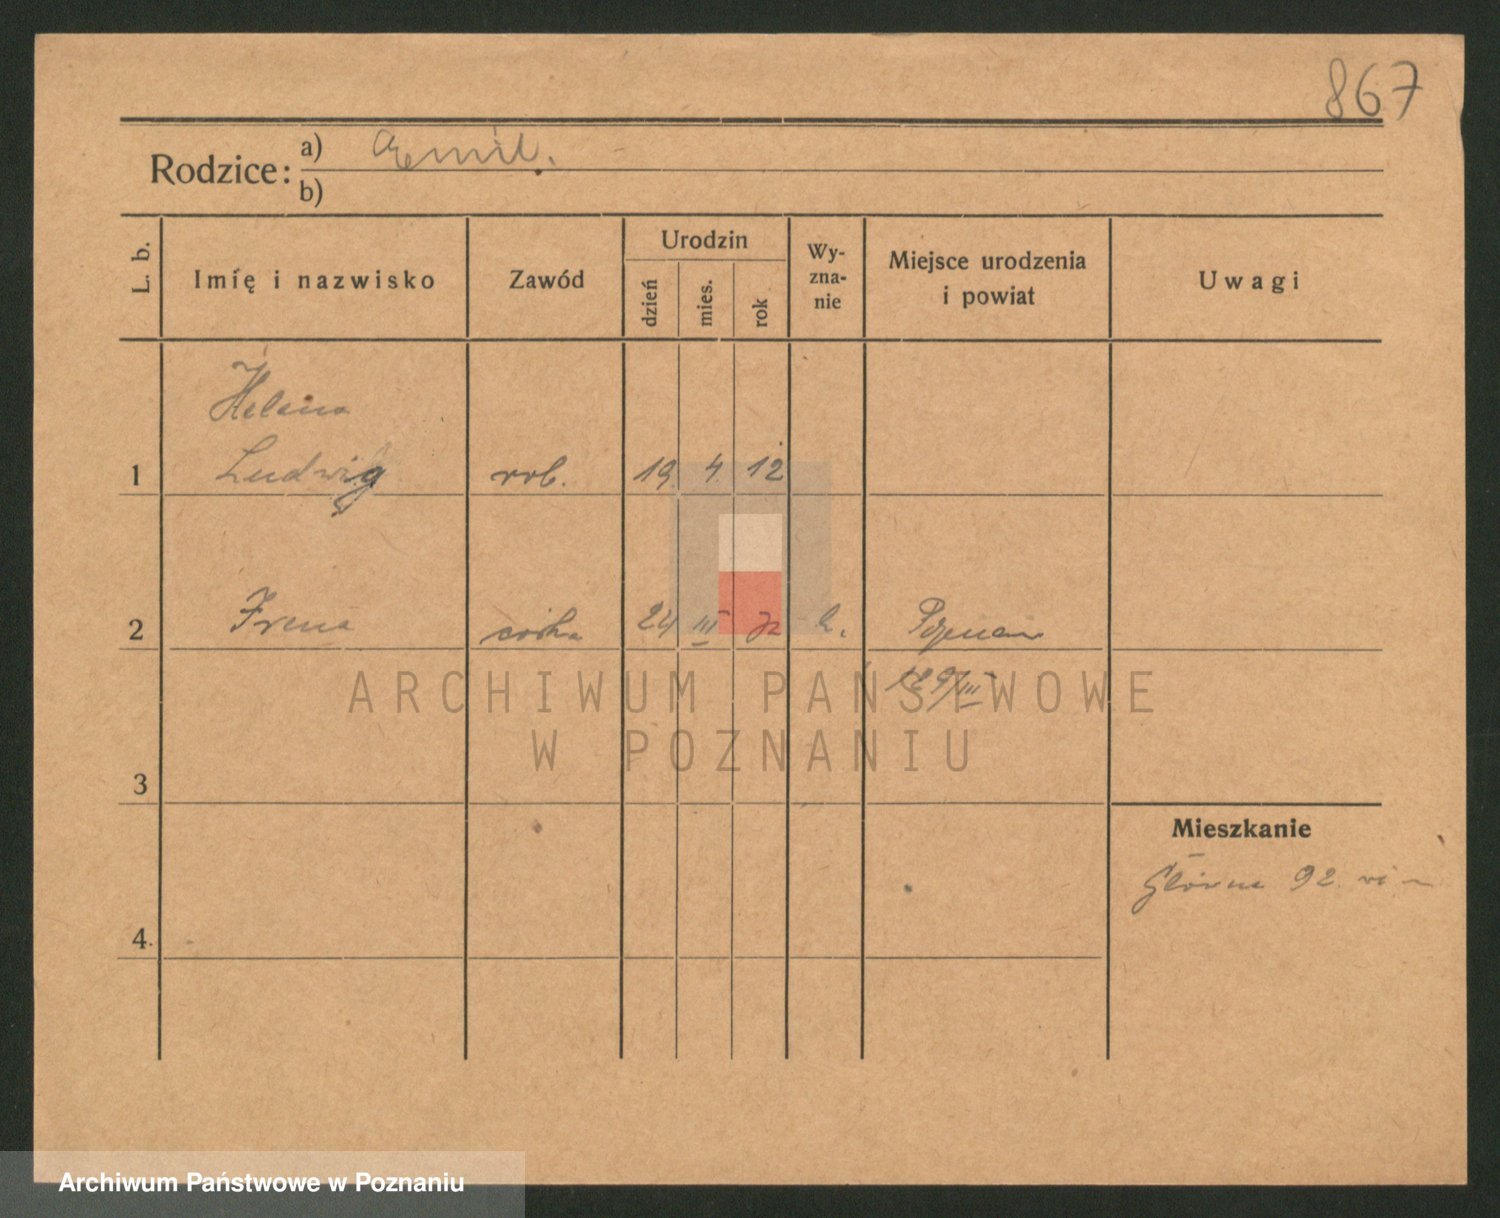 867
Rodzice: a) Emil.
b)
L. b. Imię i nazwisko Zawód Urodzin dzień mies. rok Wy-zna-nie Miejsce urodzenia i powiat Uwagi
Helena
1 Ludwig rob. 19. 4. 12
2 Irena córka 24 III 32 k. Poznań
ARCHIWUM PAŃSTWOWE
W POZNANIU
3
Mieszkanie
Główna 92.
4.
Archiwum Państwowe w Poznaniu